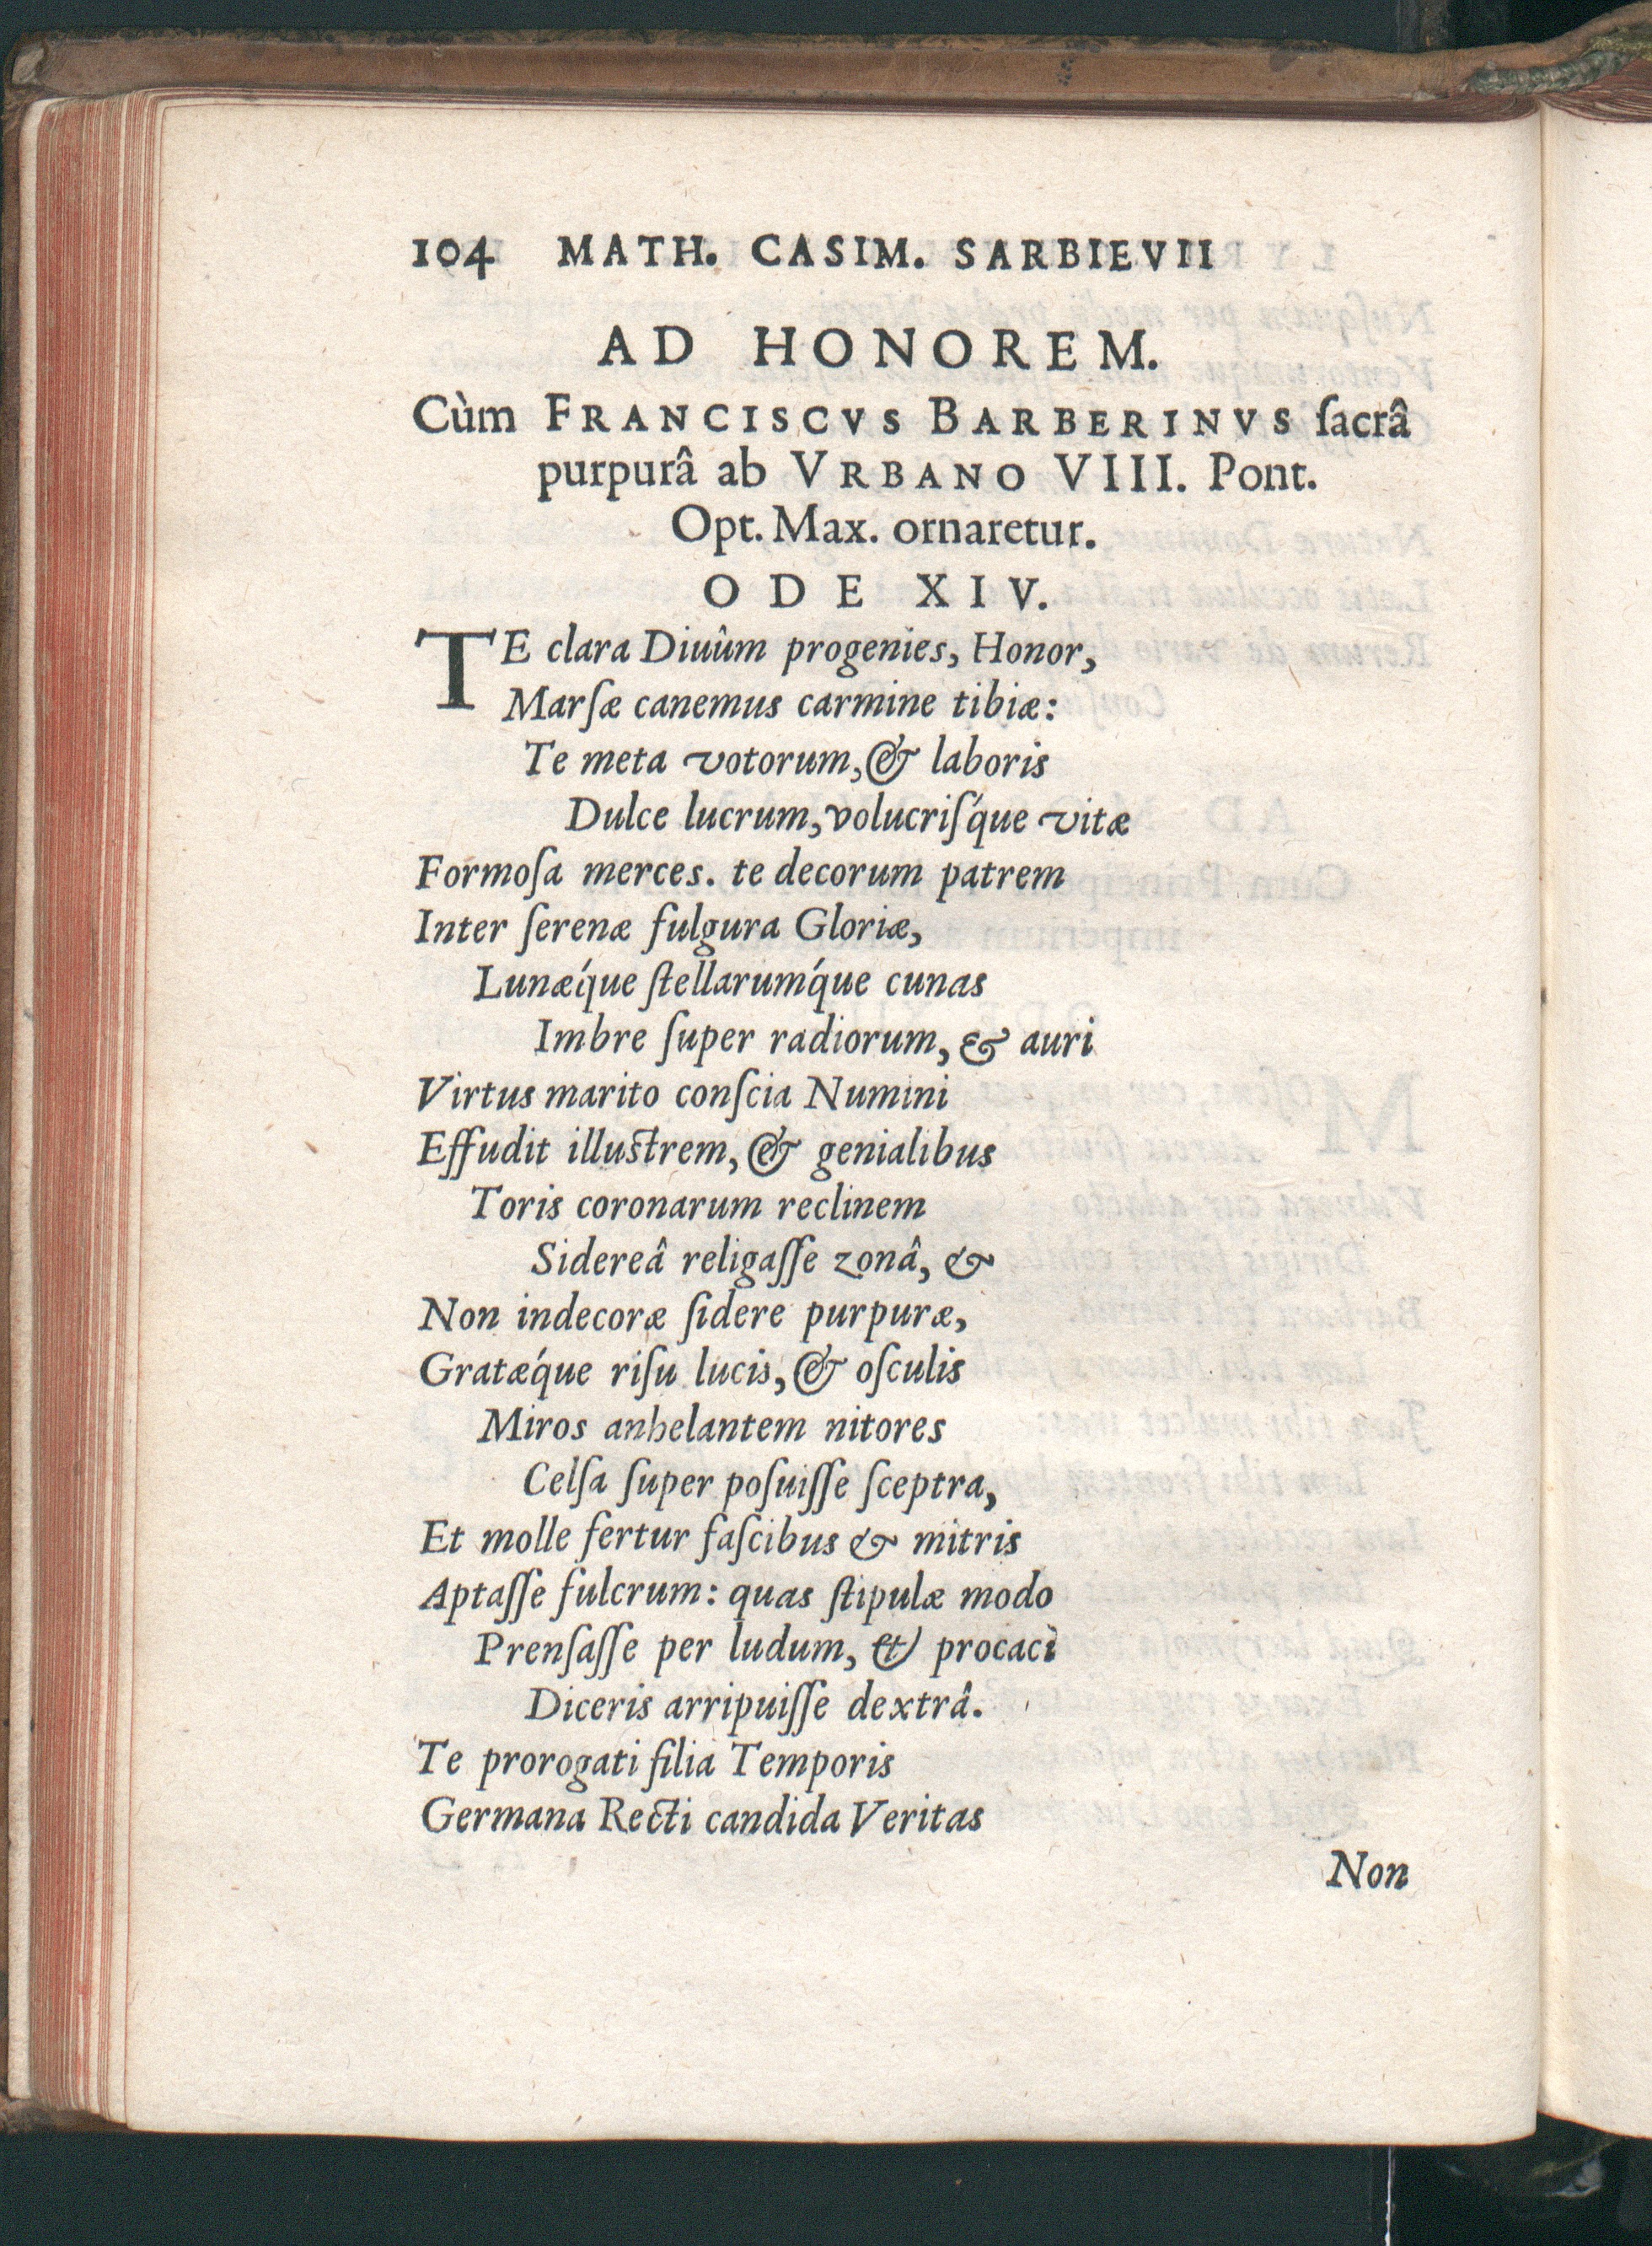 104 MATH. CASIM. SARBIEVII
AD HONOREM.
Cùm FRANCISCVS BARBERINVS ſacrâ
purpurâ ab VRBANO VIII. Pont.
Opt. Max. ornaretur.
ODE XIV.
TE clara Diuûm progenies, Honor,
Marſæ canemus carmine tibiæ:
Te meta votorum, & laboris
Dulce lucrum, volucriſq́ue vitæ
Formoſa merces. te decorum patrem
Inter ſerenæ fulgura Gloriæ,
Lunæq́ue ſtellarumq́ue cunas
Imbre ſuper radiorum, & auri
Virtus marito conſcia Numini
Effudit illuſtrem, & genialibus
Toris coronarum reclinem
Sidereâ religaſſe zonâ, &
Non indecoræ ſidere purpuræ,
Gratæq́ue riſu lucis, & oſculis
Miros anhelantem nitores
Celſa ſuper poſuiſſe ſceptra,
Et molle fertur faſcibus & mitris
Aptaſſe fulcrum: quas ſtipulæ modo
Prenſaſſe per ludum, & procaci
Diceris arripuiſſe dextrâ.
Te prorogati filia Temporis
Germana Recti candida Veritas
Non